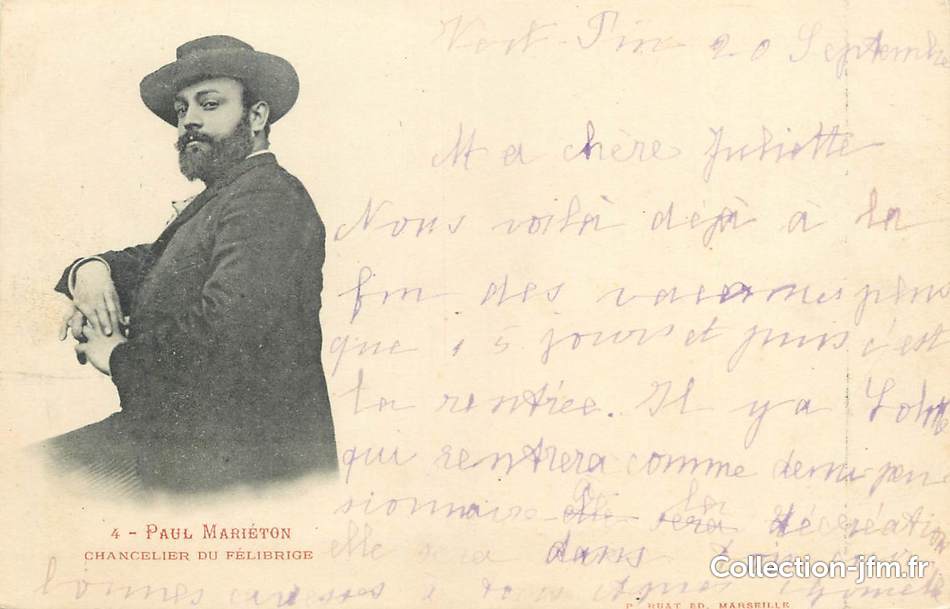 Vert-Pin 20 Septembre
Ma chère Juliette
Nous voilà déjà à la
fin des vacances plus
que 15 jours et puis c'est
la rentrée. Il y a
qui rentrera comme demi pen
sionnaire la récréation
elle sera dans
bonnes caresses à tous
4 - PAUL MARIÉTON
CHANCELIER DU FÉLIBRIGE
P. RUAT ED. MARSEILLE
Collection-jfm.fr